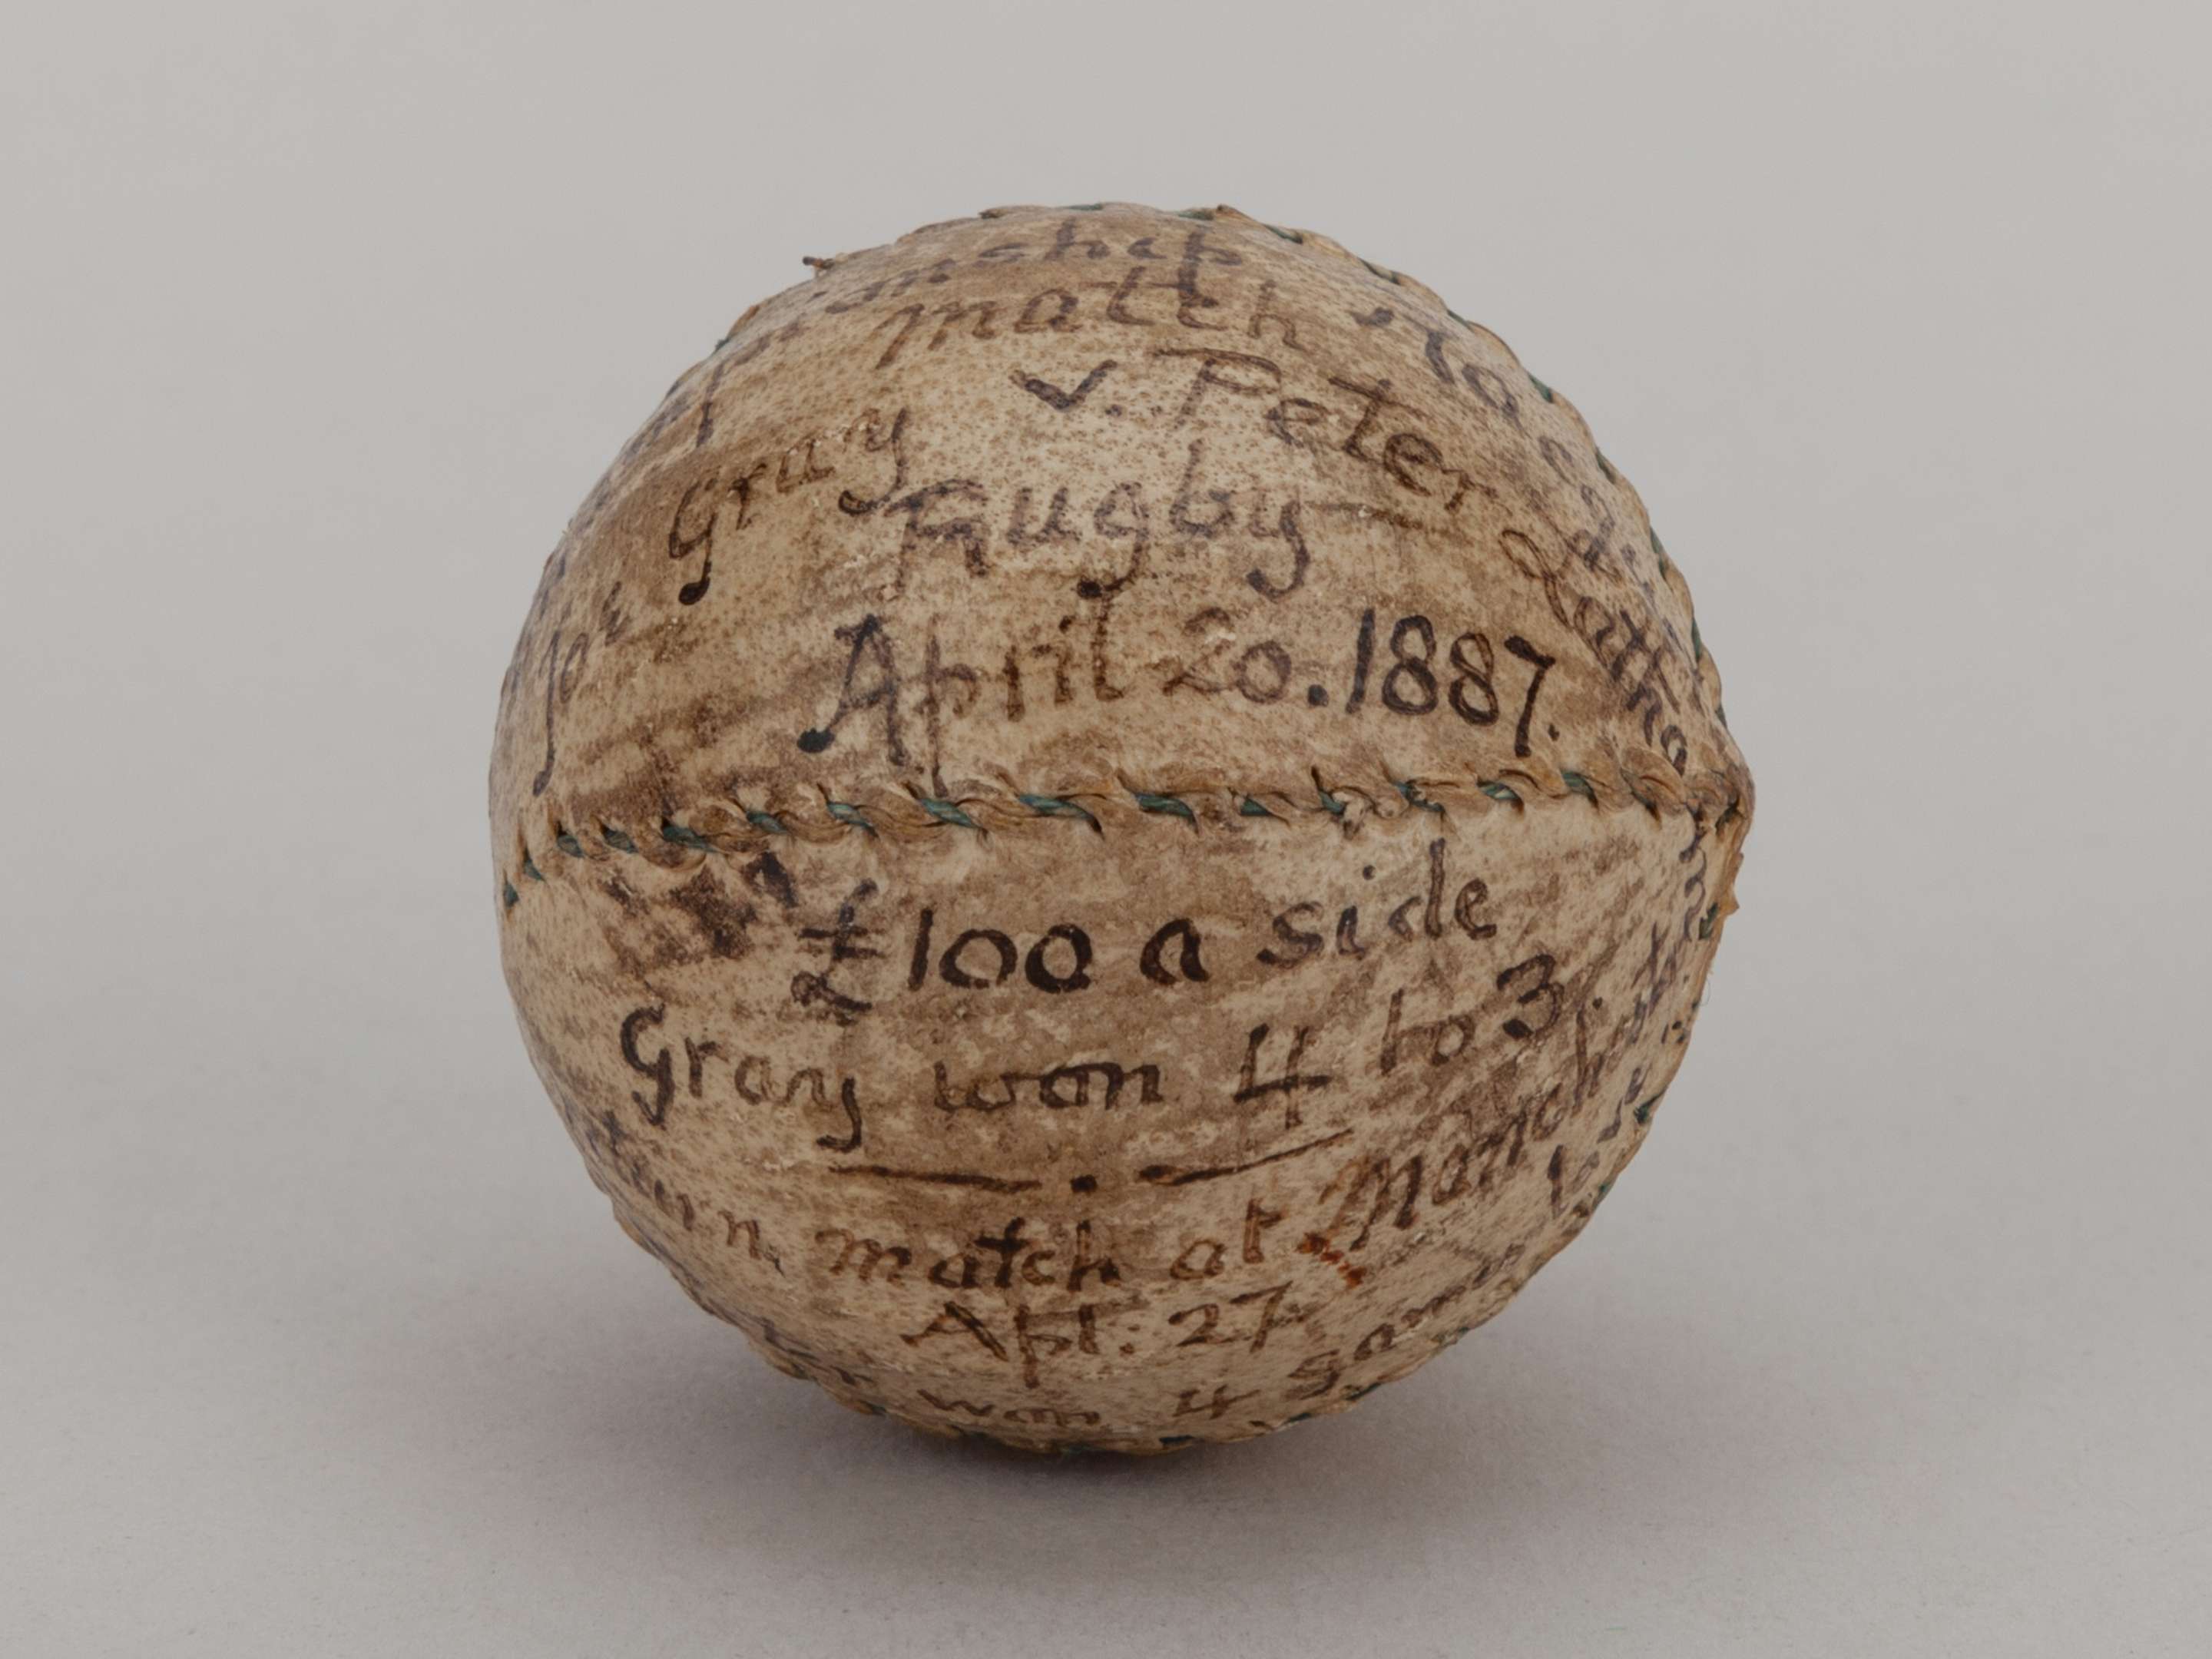 match
Joe Gray v. Peter Latham
Rugby
April 20. 1887.
£100 a side
Gray won 4 to 3
match at Manchester
Apl. 27
won 4 games